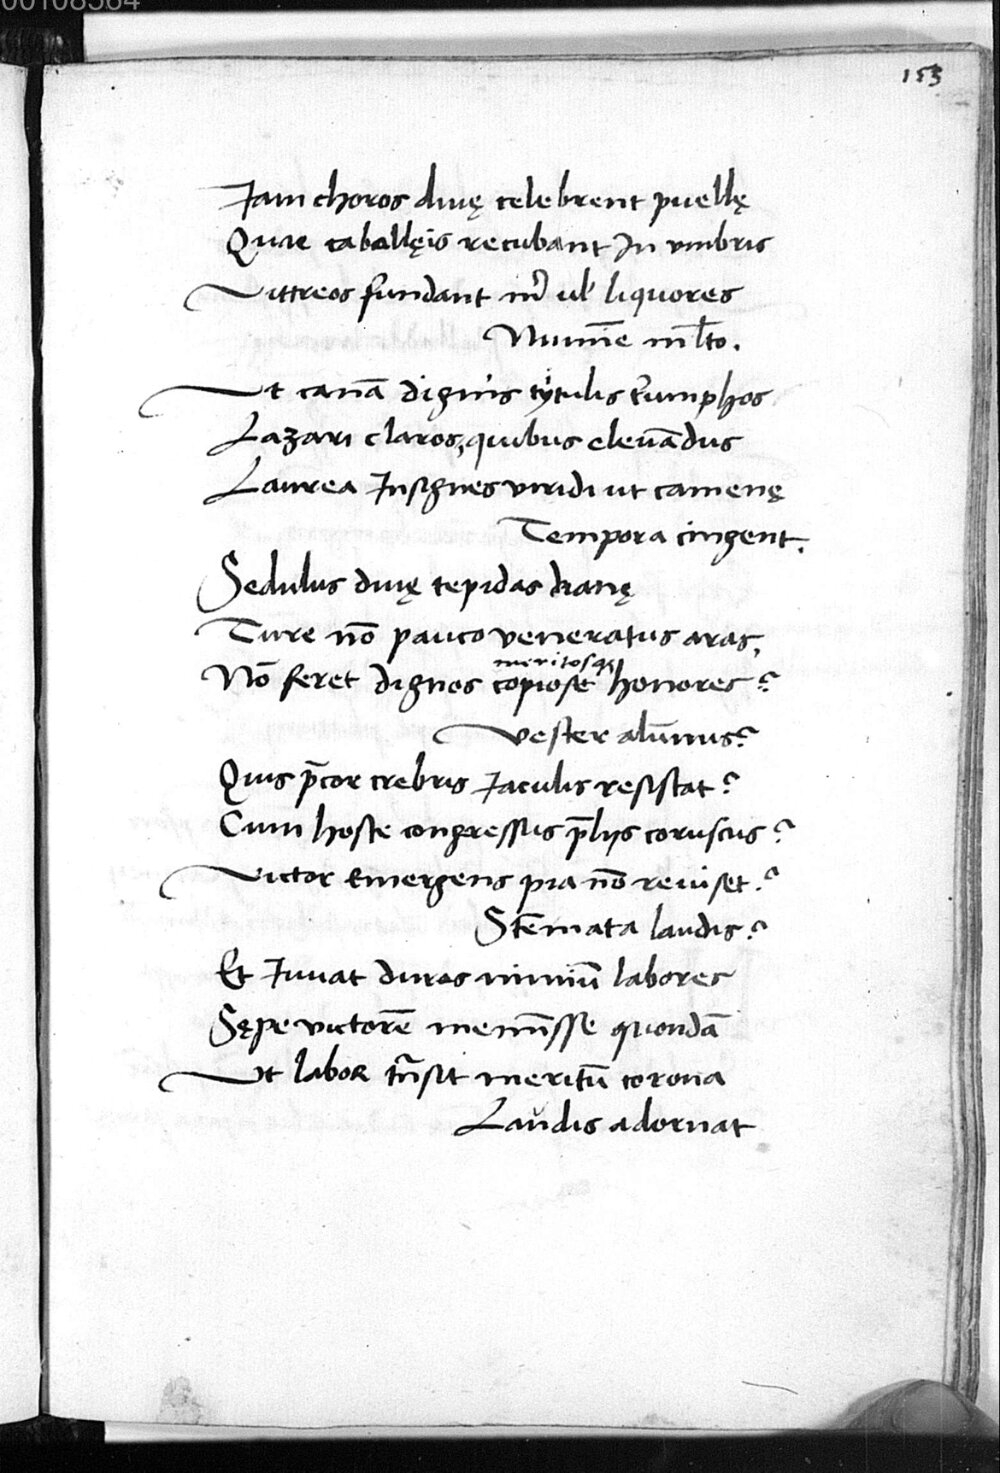 00108564
153
Iam choros diuę celebrent puellę
Quae caballęis recubant In vmbris
Vittreos fundant liquores
Numīe ml̄to.
Vt canā dignis tytulis triumphos
Lazari claros, quibus eleuādus
Laurea Insignes viridi ut camenę
Tempora cingent.
Sedulus diuę tepidas dianę
Ture nō pauco veneratus aras,
meritosq̨
Nō feret dignos copiose honores?
Vester alūnus?
Quis p̄cor crebris Iaculis resistat?
Cum hoste congressus p̄lijs coruscus?
Victor Emergens pia nō reuiset?
Stēmata laudis?
Et Iuuat duros nimiū labores
Sępe victorē memīisse quondā
Vt labor trāsit meritū corona
Laudis adornat